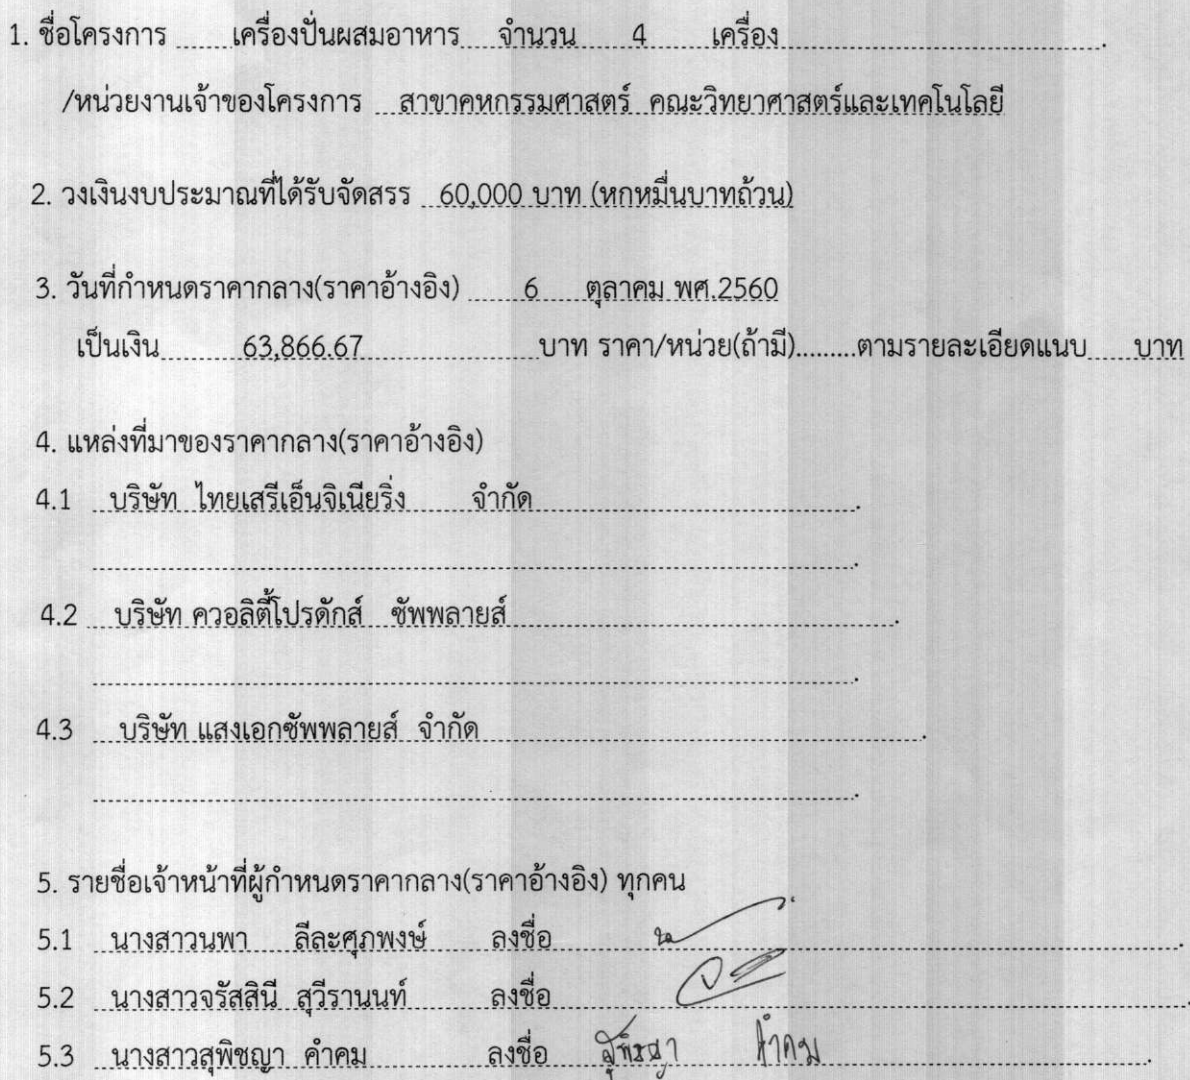 1. ชื่อโครงการ ......เครื่องปั่นผสมอาหาร....จำนวน.....4......เครื่อง.....................................................
/หน่วยงานเจ้าของโครงการ ...สาขาคหกรรมศาสตร์ คณะวิทยาศาสตร์และเทคโนโลยี
2. วงเงินงบประมาณที่ได้รับจัดสรร ...60,000 บาท (หกหมื่นบาทถ้วน)
3. วันที่กำหนดราคากลาง(ราคาอ้างอิง) ......6.....ตุลาคม พศ.2560
เป็นเงิน.........63,866.67............................บาท ราคา/หน่วย(ถ้ามี).........ตามรายละเอียดแนบ......บาท
4. แหล่งที่มาของราคากลาง(ราคาอ้างอิง)
4.1 ...บริษัท ไทยเสรีเอ็นจิเนียริ่ง.......จำกัด....................................................
4.2 ....บริษัท ควอลิตี้โปรดักส์...ซัพพลายส์..............................................................
4.3 ....บริษัท แสงเอกซัพพลายส์ จำกัด........................................................................
5. รายชื่อเจ้าหน้าที่ผู้กำหนดราคากลาง(ราคาอ้างอิง) ทุกคน
5.1 ...นางสาวนพา.....ลีละศุภพงษ์.......ลงชื่อ
5.2 ...นางสาวจรัสสินี สุวีรานนท์.........ลงชื่อ
5.3 ...นางสาวสุพิชญา คำคม.............ลงชื่อ สุพิชญา คำคม